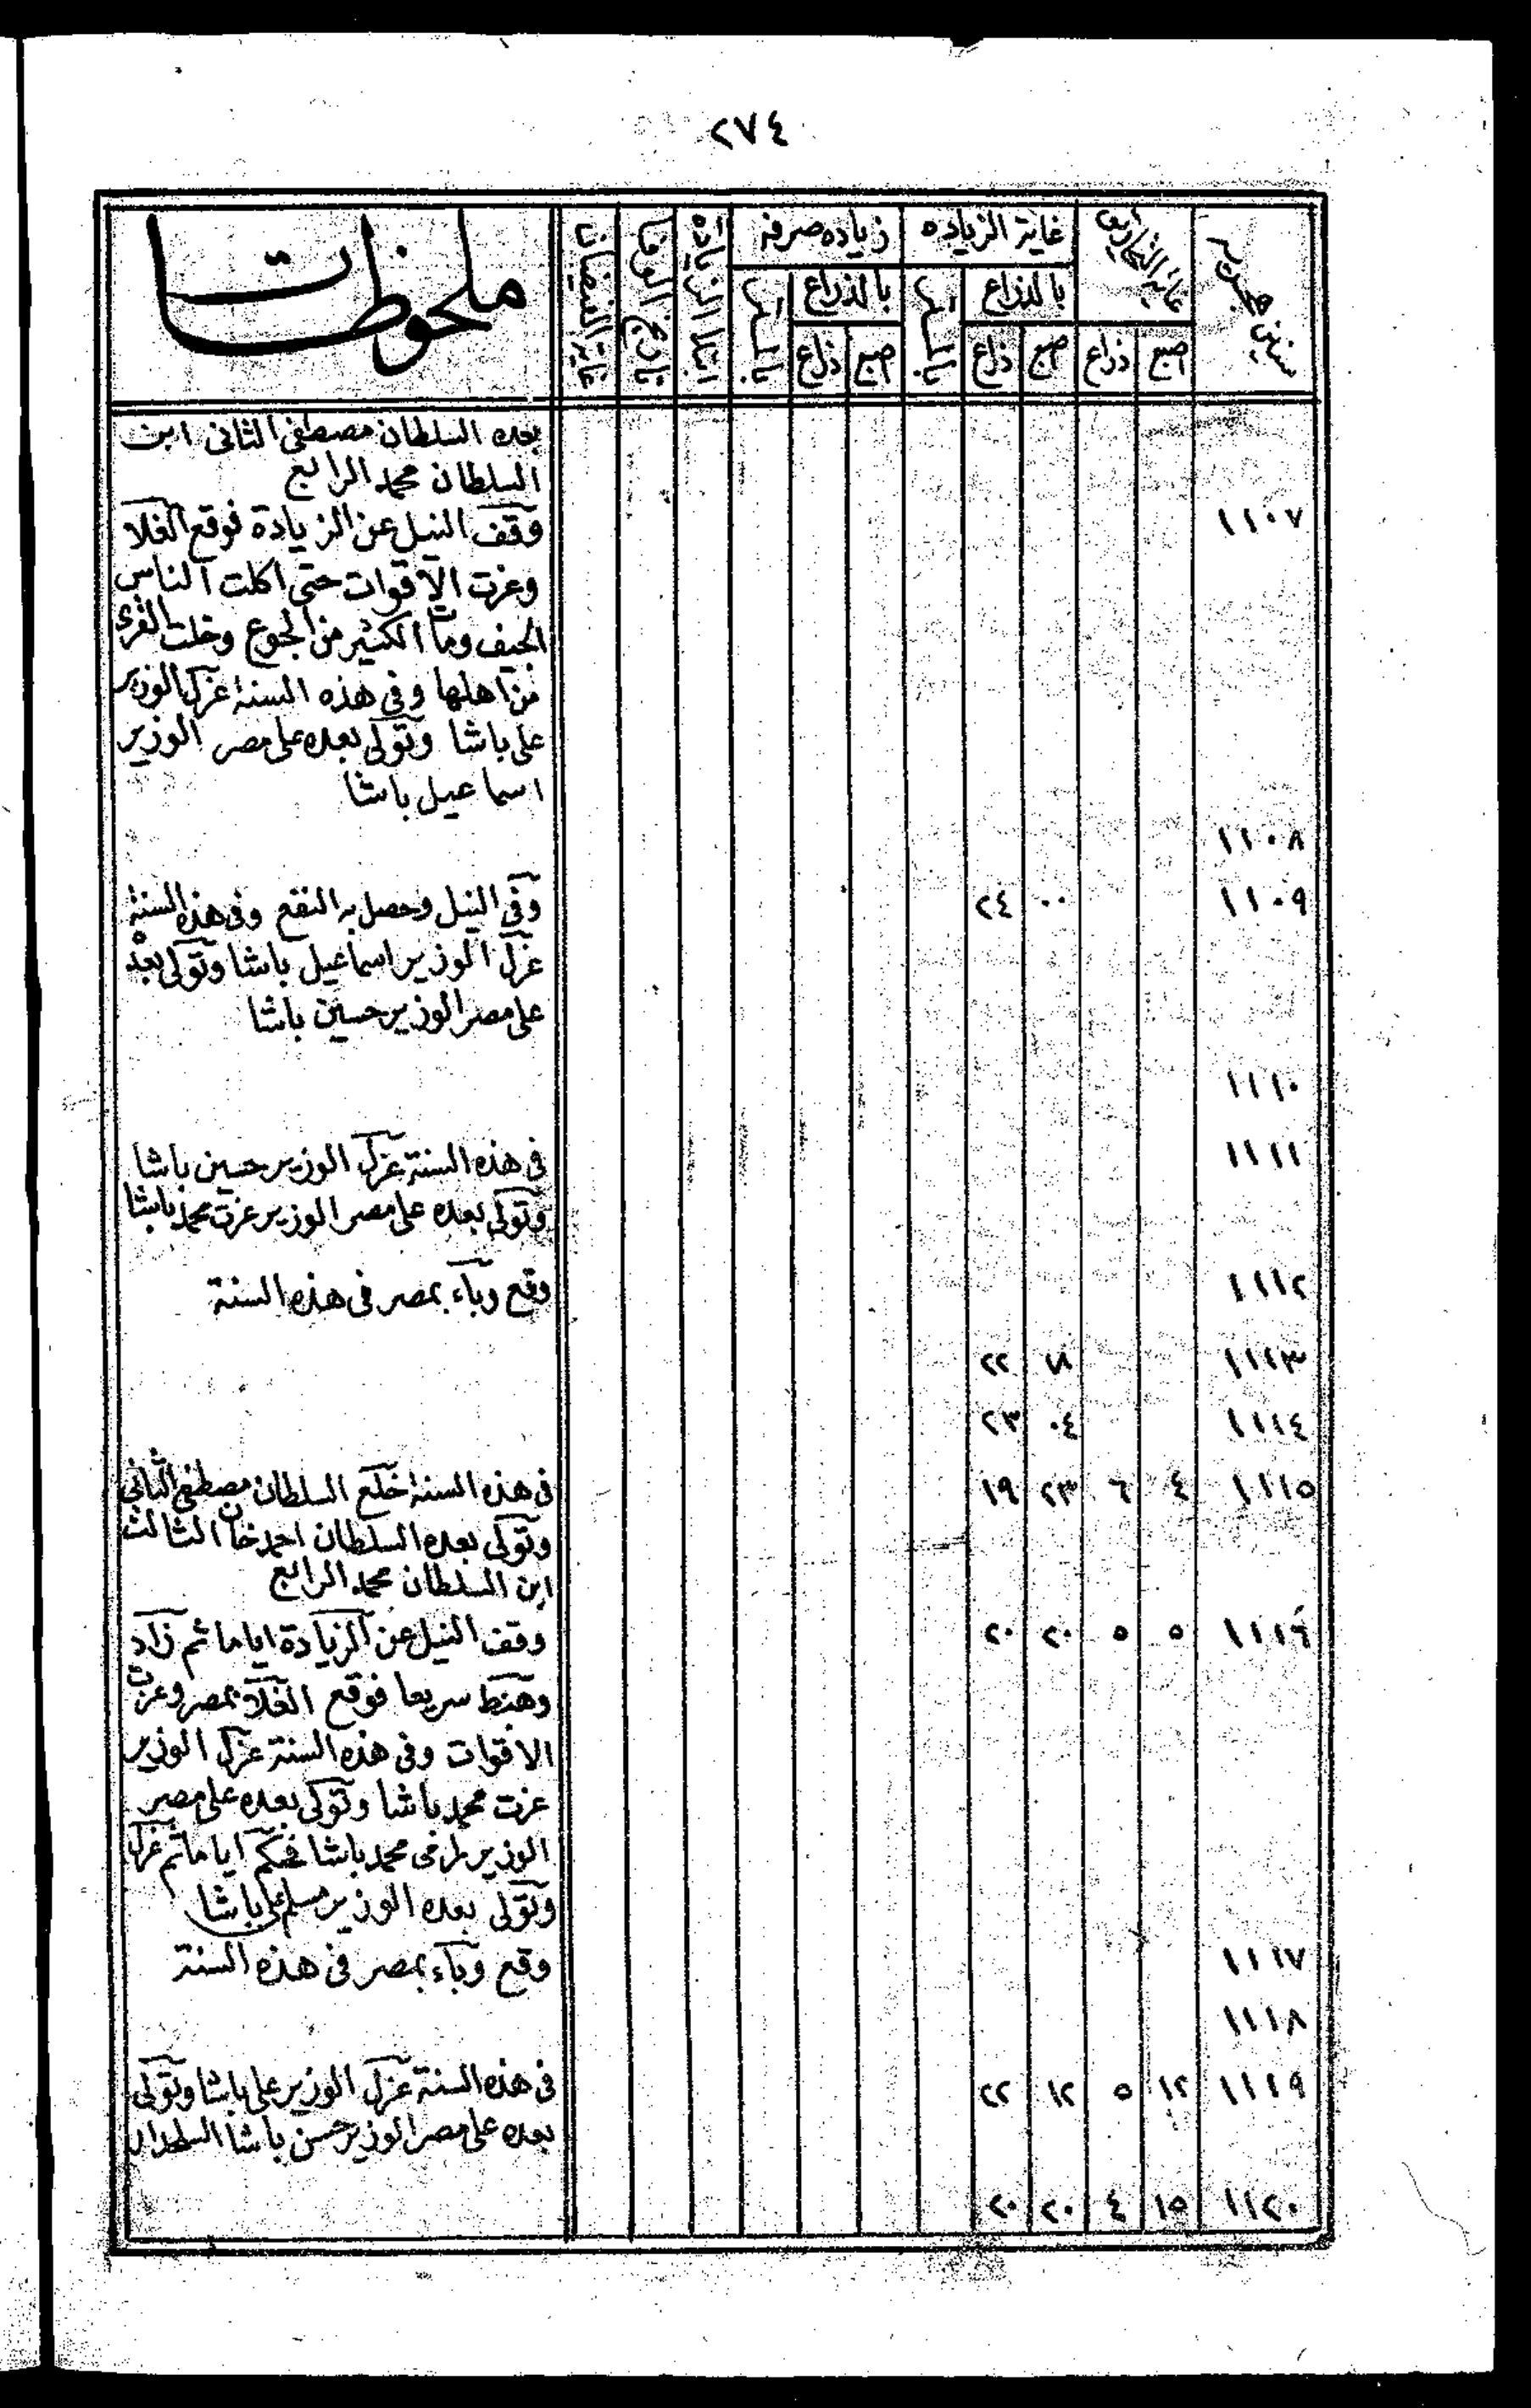 ٢٧٤
سنين هجريه
غاية التحاريق
غاية الزياده
زياده صرفه
ابتدا الزيادة
تاريخ الوفا
غاية الفيضان
ملحوظات
بالذراع
بالذراع
اصبع ذراع اصبع ذراع اصبع ذراع
بعده السلطان مصطفى الثانى ابن
السلطان محمد الرابع
١١٠٧ وقف النيل عن الزيادة فوقع الغلا
وعزت الاقوات حتى اكلت الناس
الجيف ومات الكثير من الجوع وخلت القرى
من اهلها وفى هذه السنة عزل الوزير
على باشا وتولى بعده على مصر الوزير
اسماعيل باشا
١١٠٨
١١٠٩ ٠٠ ٢٤ وفى النيل وحصل به النفع وفى هذه السنة
عزل الوزير اسماعيل باشا وتولى بعده
على مصر الوزير حسين باشا
١١١٠
١١١١ فى هذه السنة عزل الوزير حسين باشا
وتولى بعده على مصر الوزير عزت محمد باشا
١١١٢ وقع وبآء بمصر فى هذه السنة
١١١٣ ٢٢
١١١٤ ٠٤ ٢٣
١١١٥ ٤ ٦ ٢٣ ١٩ فى هذه السنة خلع السلطان مصطفى الثانى
وتولى بعده السلطان احمد خان الثالث
ابن السلطان محمد الرابع
١١١٦ ٥ ٥ ٢٠ ٢٠ وقف النيل عن الزيادة اياما ثم زاد
وهبط سريعا فوقع الغلآ بمصر وعزت
الاقوات وفى هذه السنة عزل الوزير
عزت محمد باشا وتولى بعده على مصر
الوزير رامى محمد باشا فحكم اياما ثم عزل
وتولى بعده الوزير مسلم على باشا
١١١٧ وقع وبآء بمصر فى هذه السنة
١١١٨
١١١٩ ١٢ ٥ ١٢ ٢٢ فى هذه السنة عزل الوزير على باشا وتولى
بعده على مصر الوزير حسن باشا السلحدار
١١٢٠ ١٥ ٤ ٢٠ ٢٠